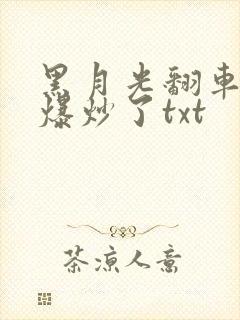 黑月光翻车
爆炒了txt
茶凉人意